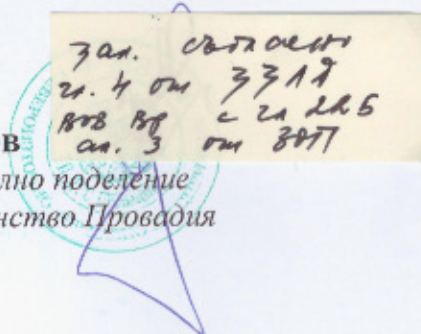 зал. съгласно
чл. 4 от ЗЗЛД
във вр с чл 22б
ал. 3 от ЗОП
В
лно поделение
нство Провадия